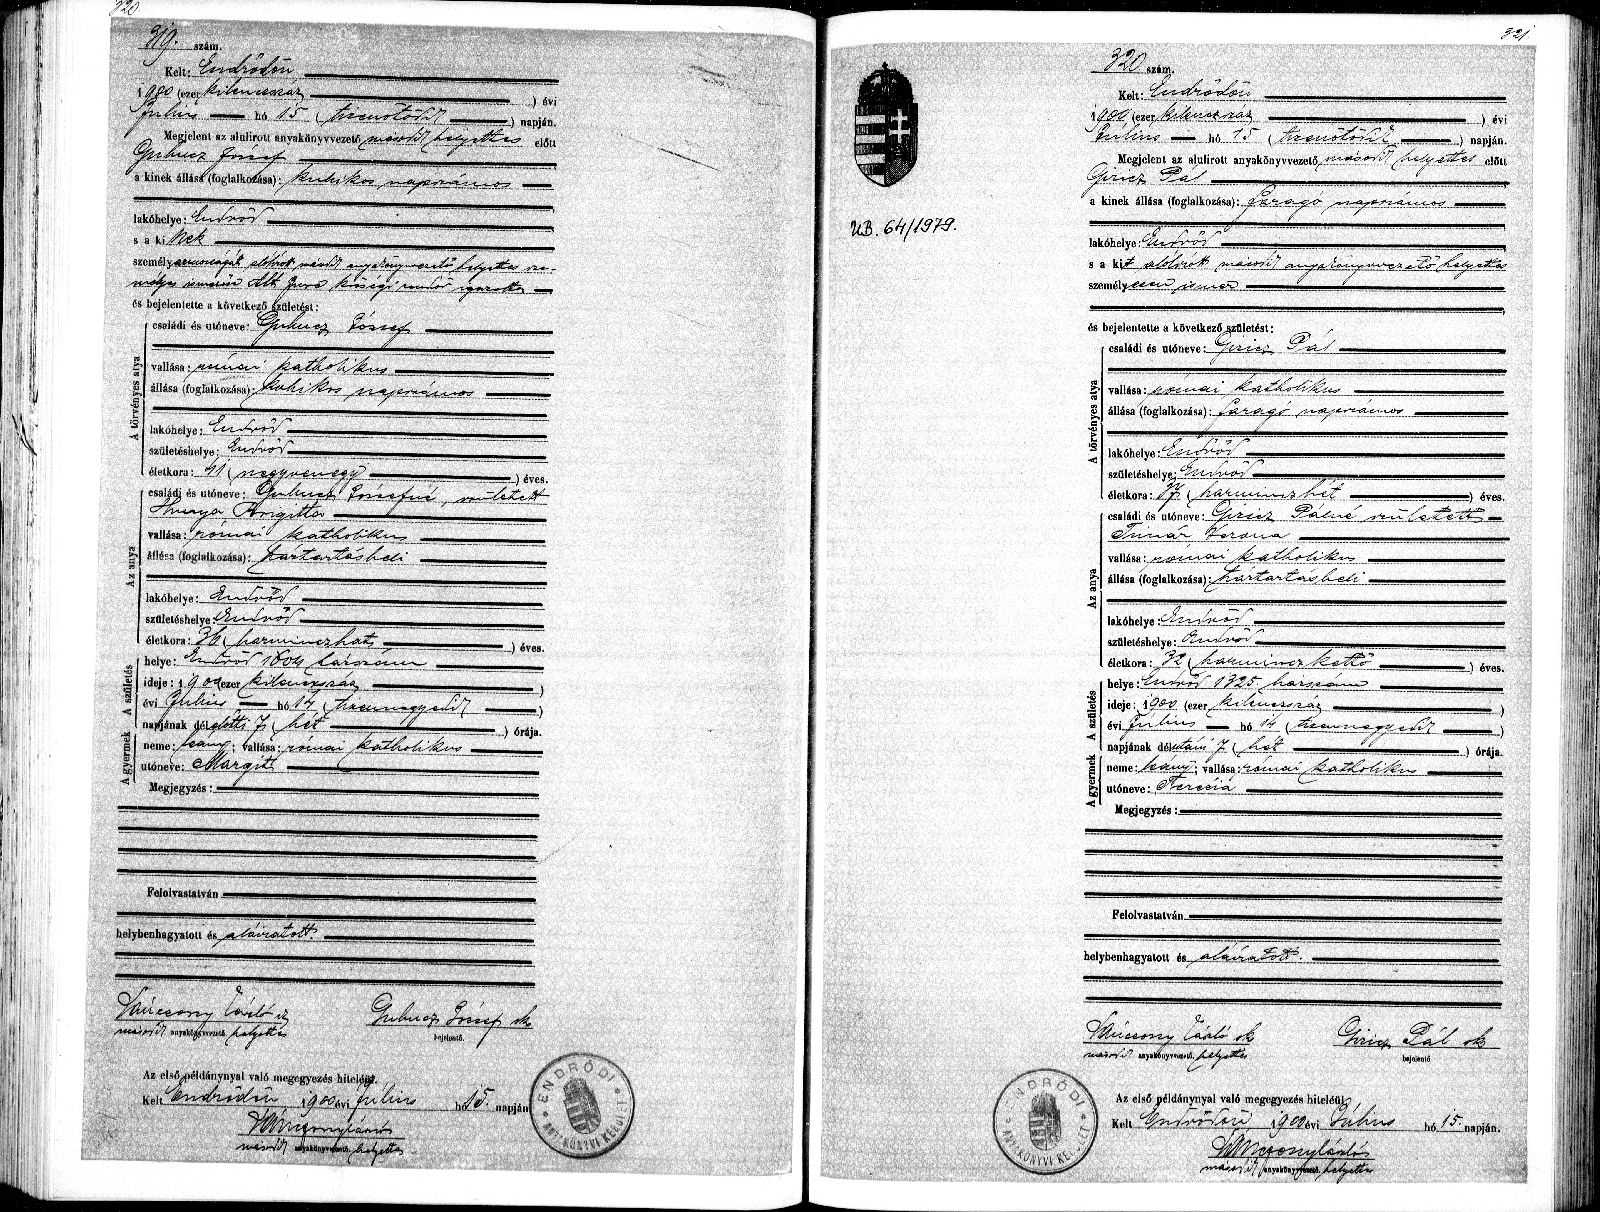 320
319. szám.
Kelt: Endrődön
1900 (ezer kilenczszáz) évi
Julius hó 15 (tizenötödik) napján.
Megjelent az alulirott anyakönyvvezető másodk helyettes előtt
József
a kinek állása (foglalkozása): kubikos napszámos
lakóhelye: Endrőd
s a ki nek
személyazonosságát alulirott másodk anyakönyvvezető helyettes sze-
községi
és bejelentette a következő születést:
A törvényes atya
családi és utóneve: József
vallása: római katholikus
állása (foglalkozása): kubikos napszámos
lakóhelye: Endrőd
születéshelye: Endrőd
életkora: 41 (negyvenegy) éves.
Az anya
családi és utóneve: Józsefné, született
Hunya
vallása: római katholikus
állása (foglalkozása): háztartásbeli
lakóhelye: Endrőd
születéshelye: Endrőd
életkora: 36 (harminczhat) éves.
A születés
helye: Endrőd 1604 házszám
ideje: 1900 (ezer kilenczszáz)
évi Julius hó 14 (tizennegyedik)
napjának délelőtti 7 (hét) órája.
A gyermek
neme: leány; vallása: római katholikus
utóneve: Margit
Megjegyzés:
Felolvastatván
helybenhagyatott és aláiratott.
József sk
másodk anyakönyvvezető helyettes
bejelentő.
Az első példánynyal való megegyezés hiteléül.
Kelt Endrődön 1900 évi Julius hó 15. napján
másodk anyakönyvvezető helyettes
ENDRŐDI ANYAKÖNYVI KERÜLET
UB. 64/1979.
321
320 szám.
Kelt: Endrődön
1900 (ezer kilenczszáz) évi
Julius hó 15 (tizenötödik) napján.
Megjelent az alulirott anyakönyvvezető másodk helyettes előtt
Giricz Pál
a kinek állása (foglalkozása): faragó napszámos
lakóhelye: Endrőd
s a kit alulirott másodk anyakönyvvezető helyettes
személyesen ismer
és bejelentette a következő születést:
A törvényes atya
családi és utóneve: Giricz Pál
vallása: római katholikus
állása (foglalkozása): faragó napszámos
lakóhelye: Endrőd
születéshelye: Endrőd
életkora: 37 (harminczhét) éves.
Az anya
családi és utóneve: Giricz Pálné született
Timár Terona
vallása: római katholikus
állása (foglalkozása): háztartásbeli
lakóhelye: Endrőd
születéshelye: Endrőd
életkora: 32 (harminczkettő) éves.
A születés
helye: Endrőd 1325 házszám
ideje: 1900 (ezer kilenczszáz)
évi Julius hó 14 (tizennegyedik)
napjának délutáni 7 (hét) órája.
A gyermek
neme: leány; vallása: római katholikus
utóneve: Terézia
Megjegyzés:
Felolvastatván
helybenhagyatott és aláiratott.
Giricz Pál sk
másodk anyakönyvvezető helyettes
bejelentő
Az első példánynyal való megegyezés hiteléül.
Kelt Endrődön, 1900 évi Július hó 15. napján.
másodk anyakönyvvezető helyettes
ENDRŐDI ANYAKÖNYVI KERÜLET